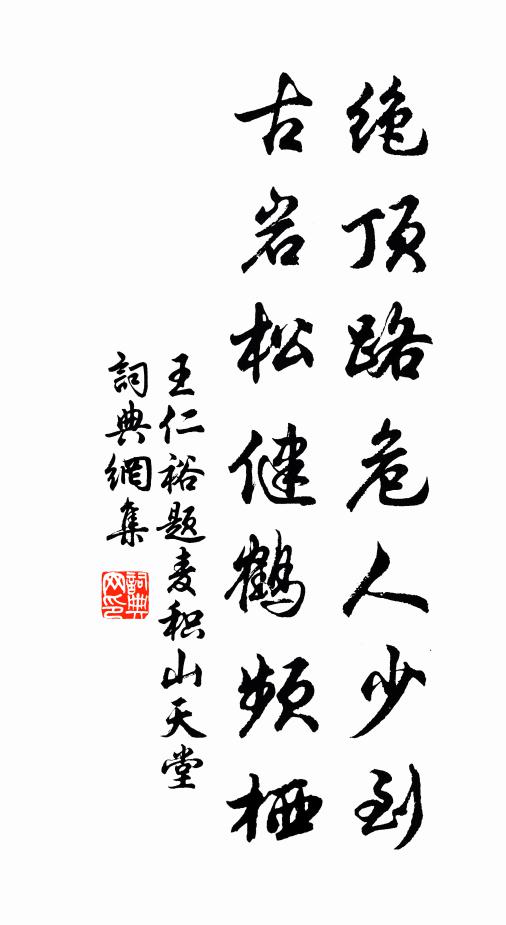 绝顶路危人少到
古岩松健鹤频栖
王仁裕题麦积山天堂
詞典網集
詞典网印